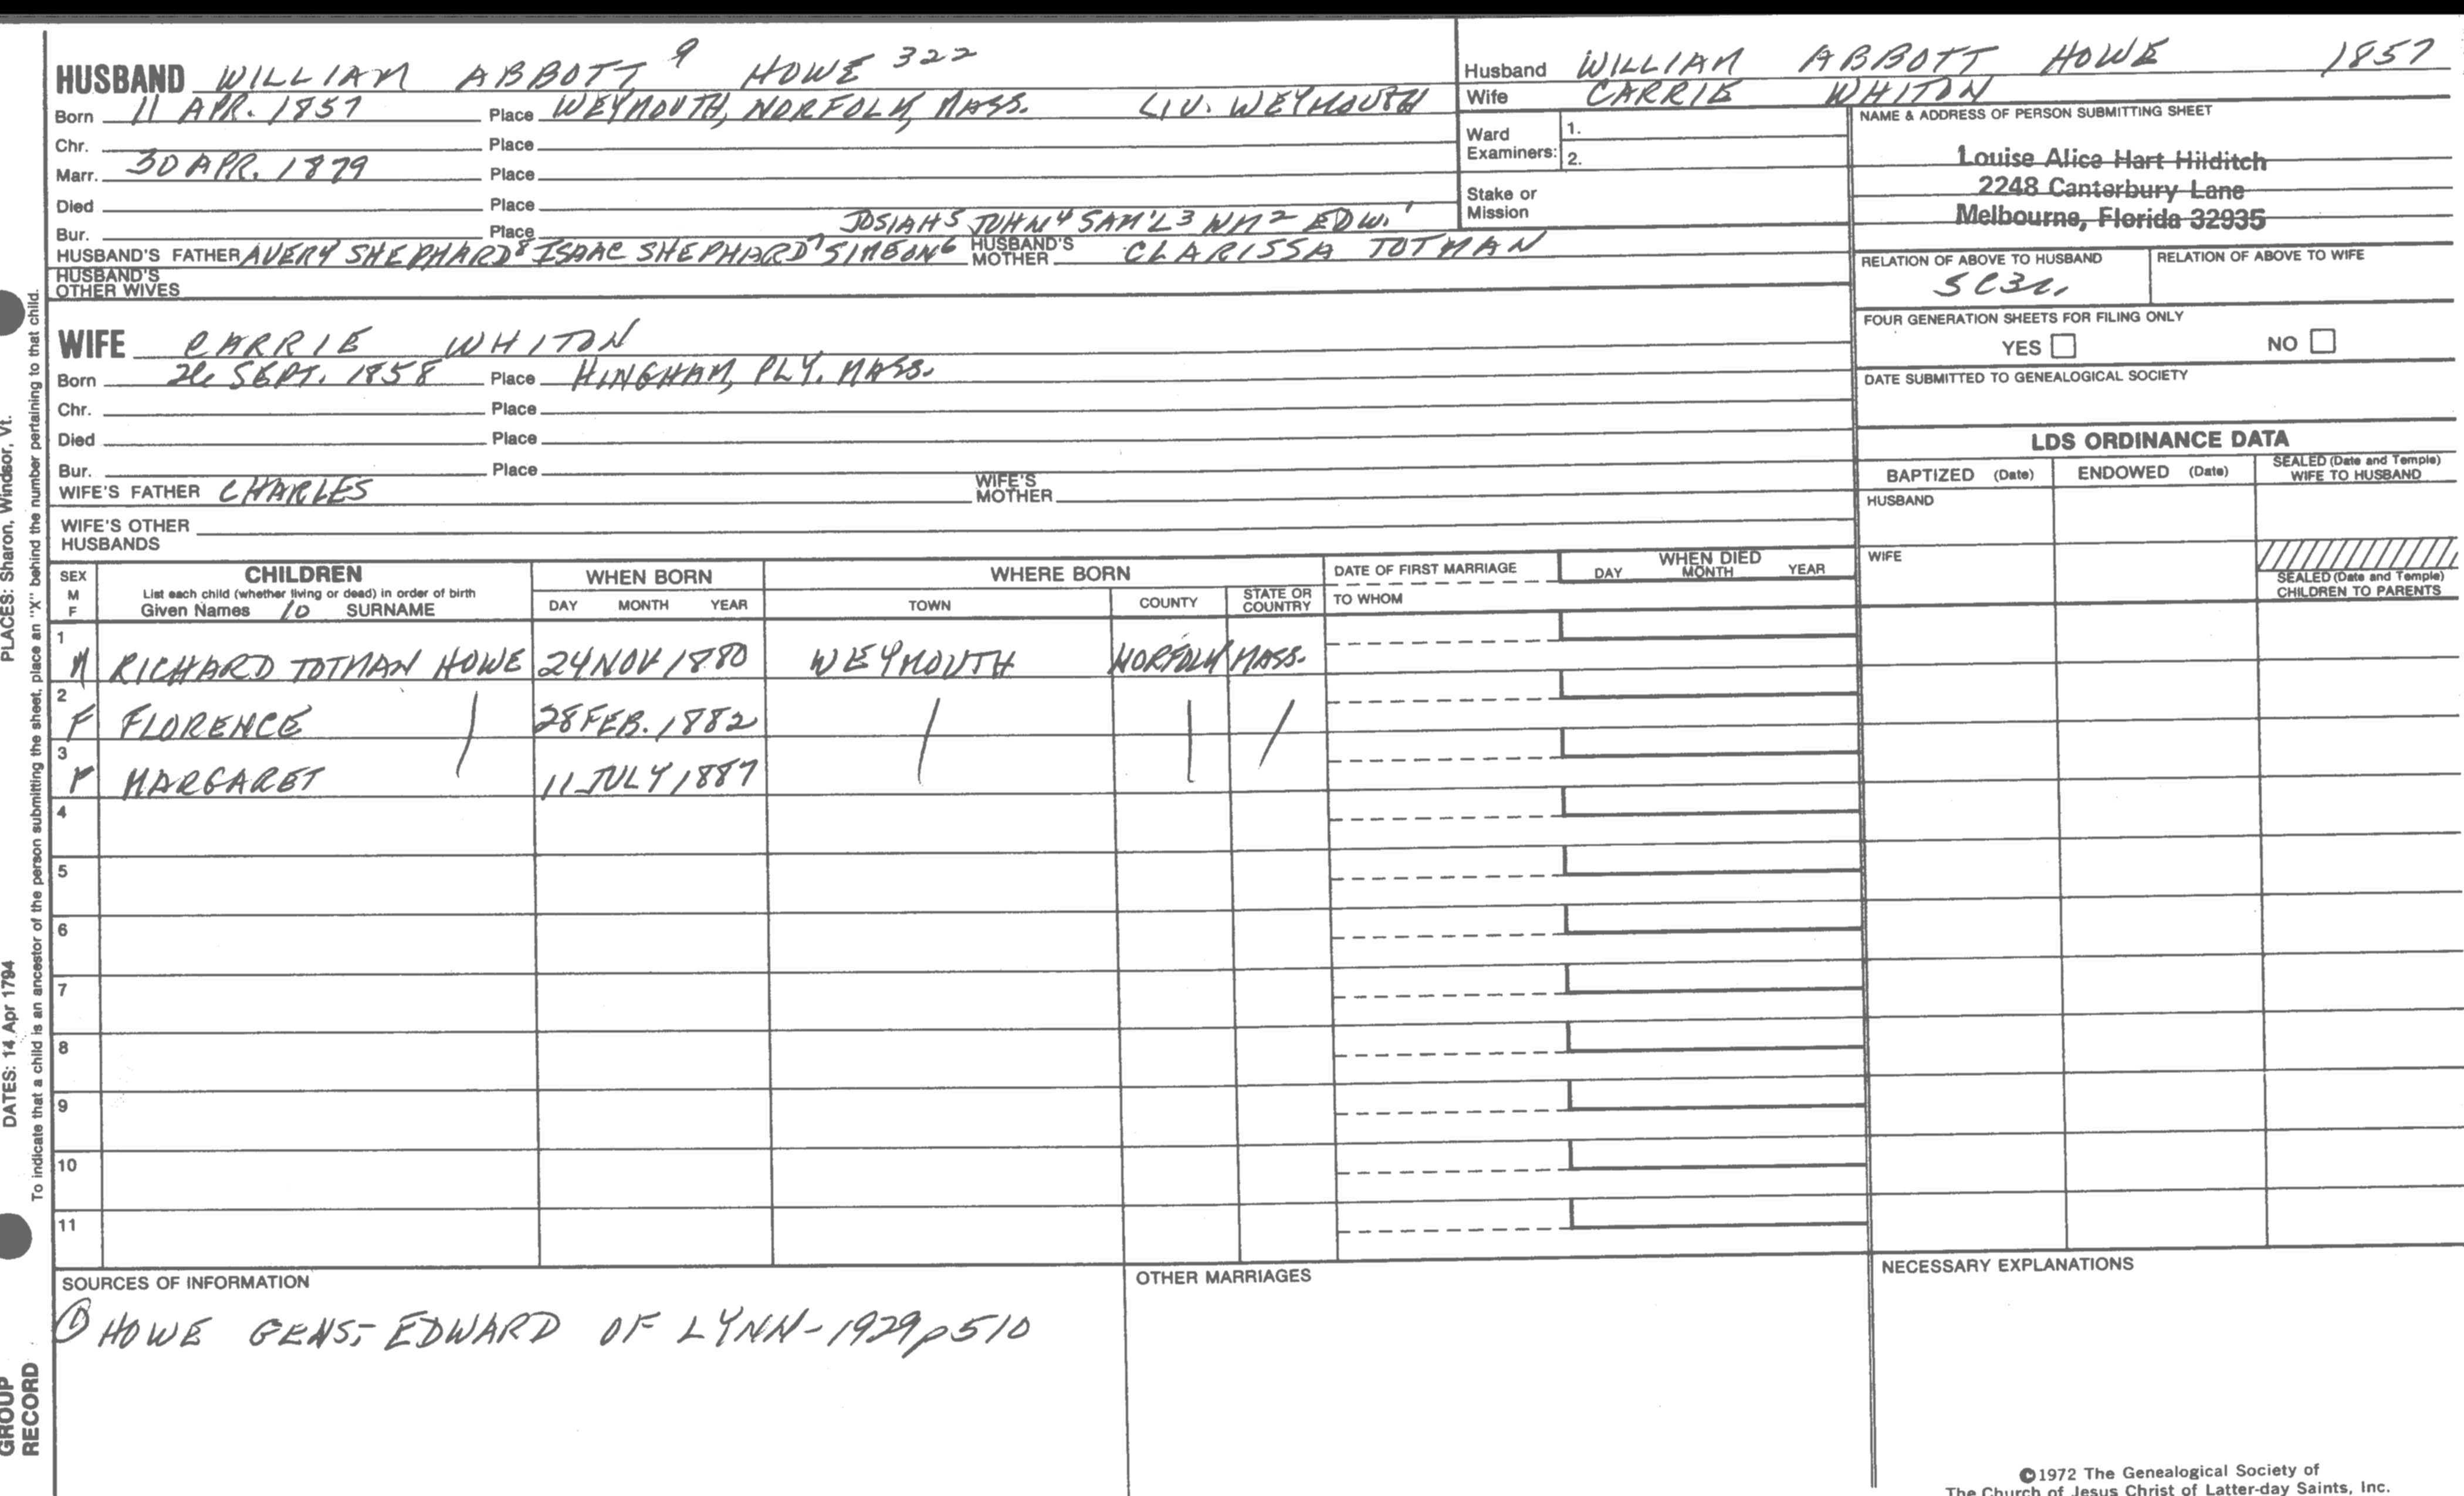 HUSBAND WILLIAM ABBOTT 9 HOWE 322
Born 11 APR. 1857 Place WEYMOUTH, NORFOLK, MASS. LIV. WEYMOUTH
Chr. Place
Marr. 30 APR. 1879 Place
Died Place
Bur. Place JOSIAH5 JOHN4 SAM'L3 WM2 EDW.1
HUSBAND'S FATHER AVERY SHEPHARD8 ISAAC SHEPHARD7 SIMEON6 HUSBAND'S MOTHER CLARISSA TOTMAN
HUSBAND'S OTHER WIVES
WIFE CARRIE WHITON
Born SEPT. 1858 Place HINGHAM, PLY. MASS.
Chr. Place
Died Place
Bur. Place
WIFE'S FATHER CHARLES WIFE'S MOTHER
WIFE'S OTHER HUSBANDS
Husband WILLIAM ABBOTT HOWE 1857
Wife CARRIE WHITON
Ward Examiners: 1.
2.
Stake or Mission
NAME & ADDRESS OF PERSON SUBMITTING SHEET
Louise Alice Hart Hilditch
2248 Canterbury Lane
Melbourne, Florida 32935
RELATION OF ABOVE TO HUSBAND RELATION OF ABOVE TO WIFE
FOUR GENERATION SHEETS FOR FILING ONLY
YES NO
DATE SUBMITTED TO GENEALOGICAL SOCIETY
LDS ORDINANCE DATA
BAPTIZED (Date) ENDOWED (Date) SEALED (Date and Temple) WIFE TO HUSBAND
HUSBAND
WIFE
SEALED (Date and Temple)
CHILDREN TO PARENTS
SEX M F CHILDREN WHEN BORN WHERE BORN DATE OF FIRST MARRIAGE WHEN DIED
List each child (whether living or dead) in order of birth
Given Names 10 SURNAME DAY MONTH YEAR TOWN COUNTY STATE OR COUNTRY TO WHOM DAY MONTH YEAR
1 M RICHARD TOTMAN HOWE 24 NOV 1880 WEYMOUTH NORFOLK MASS.
2 F FLORENCE 28 FEB. 1882
3 F MARGARET 11 JULY 1887
4
5
6
7
8
9
10
11
SOURCES OF INFORMATION
① HOWE GENS,- EDWARD OF LYNN-1929 p510
OTHER MARRIAGES
NECESSARY EXPLANATIONS
©1972 The Genealogical Society of
The Church of Jesus Christ of Latter-day Saints, Inc.
PLACES: Sharon, Windsor, Vt.
DATES: 14 Apr 1794
To indicate that a child is an ancestor of the person submitting the sheet, place an "X" behind the number pertaining to that child.
GROUP
RECORD